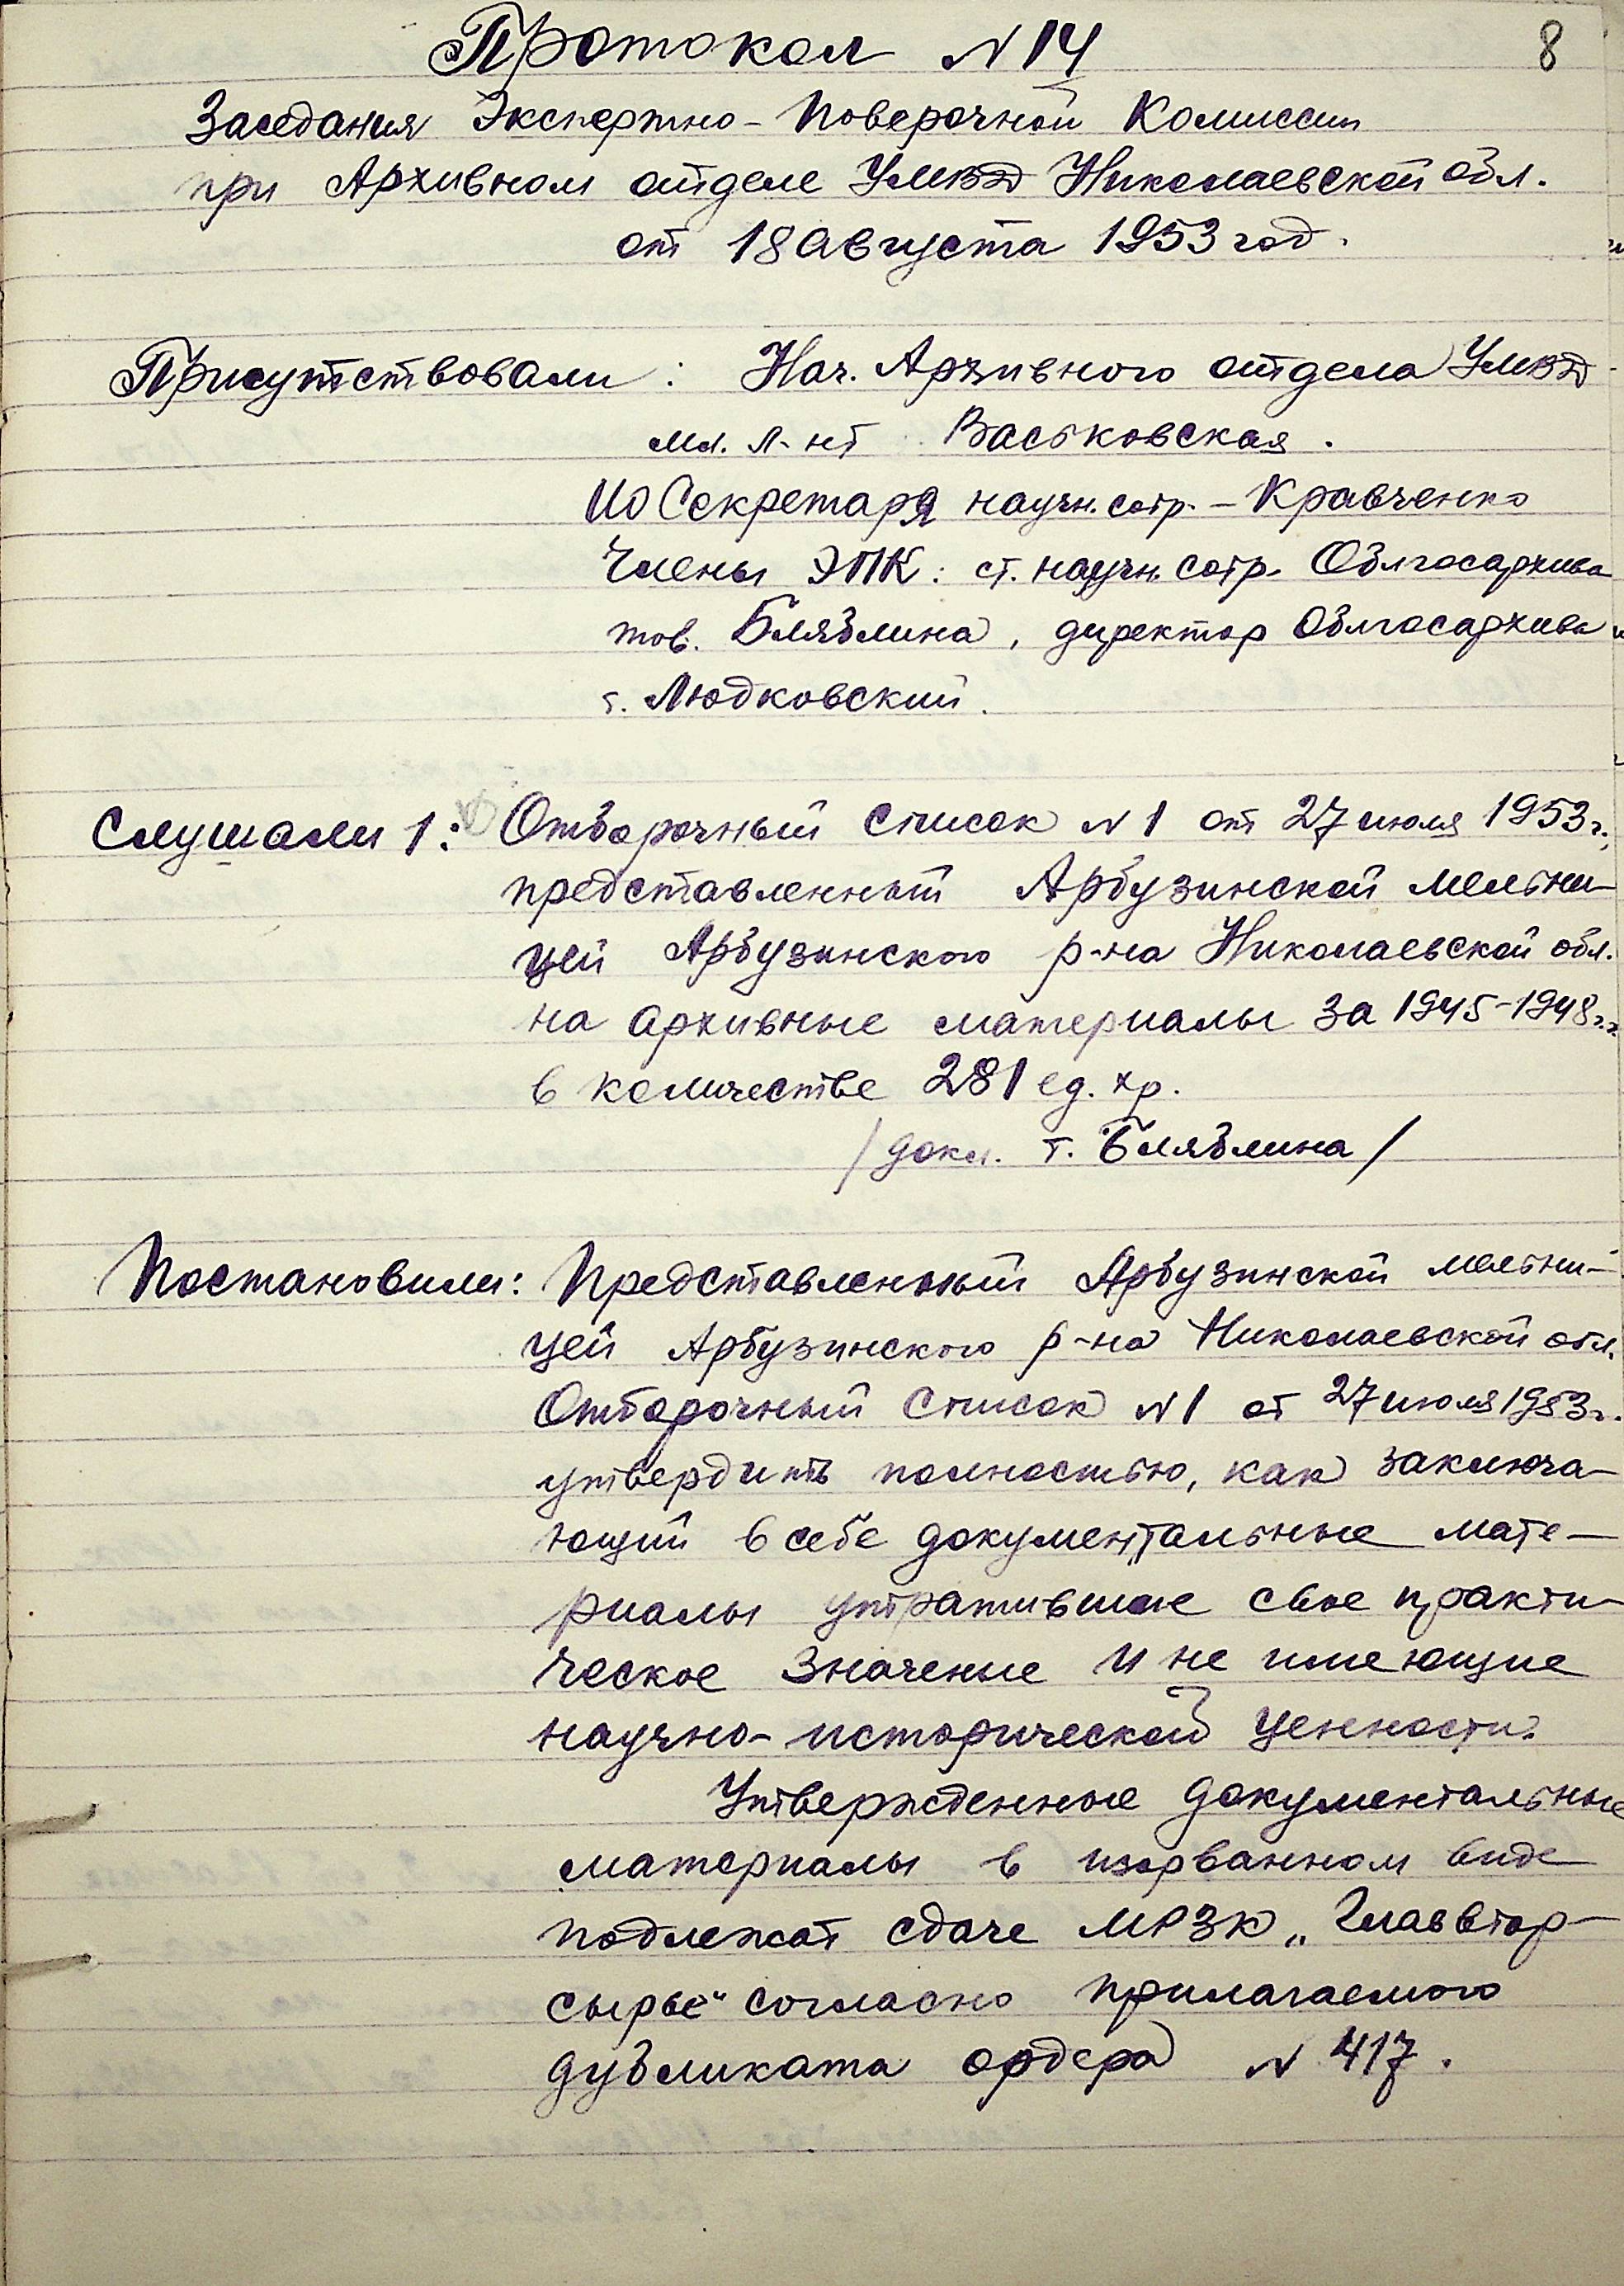 8
Протокол N 14
Заседания Экспертно-Поверочной Комиссии
при Архивном отделе УМВД Николаевской обл.
от 18 августа 1953 год.
Присутствовали: Нач. Архивного отдела УМВД
мл. л-нт Васьковская.
ИО Секретаря научн. сотр. - Кравченко
Члены ЭПК: ст. научн. сотр. Облгосархива
тов. Бляблина, директор Облгосархива
т. Людковский.
Слушали 1: Отборочный список N 1 от 27 июля 1953 г.,
представленный Арбузинской мельни-
цей Арбузинского р-на Николаевской обл.
на архивные материалы за 1945-1948 г.г.
в количестве 281 ед. хр.
/докл. т. Бляблина/
Постановили: Представленный Арбузинской мельни-
цей Арбузинского р-на Николаевской обл.
Отборочный список N 1 от 27 июля 1953 г.
утвердить полностью, как заключа-
ющий в себе документальные мате-
риалы утратившие свое практи-
ческое значение и не имеющие
научно-исторической ценности.
Утвержденные документальные
материалы в изорванном виде
подлежат сдаче МРЗК „Главвтор-
сырье" согласно прилагаемого
дубликата ордера N 417.